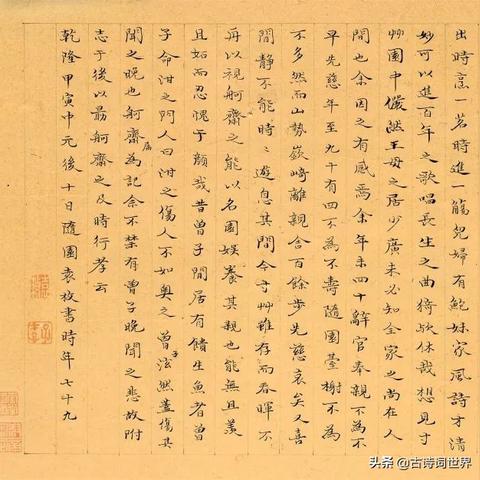 出時烹一茗時進一觴兒婦有鮑妹家風詩才清
妙可以進百年之歌唱長生之曲猗歟休哉想見寸
艸園中儼然王母之居少廣未必知全家之尚在人
間也余因之有感焉余年未四十辭官奉親不為不
早先慈年至九十有四不為不壽隨園臺榭不為
不多然而山勢嶔崎離親舍百餘步先慈衰矣又喜
閒靜不能時〻遊息其間今寸艸雖存而春暉不
再以視舸齋之能以名園娛養其親也能無且羨
且妬而忍愧于顏哉昔曾子閒居有饋生魚者曾
子命泔之門人曰泔之傷人不如奧之曾子泫然蓋傷其
聞之晚也舸齋屬為記余不禁有曾子晚聞之悲故附
志于後以勗舸齋之及時行孝云
乾隆甲寅中元後十日隨園袁枚書時年七十九
头条 @古诗词世界